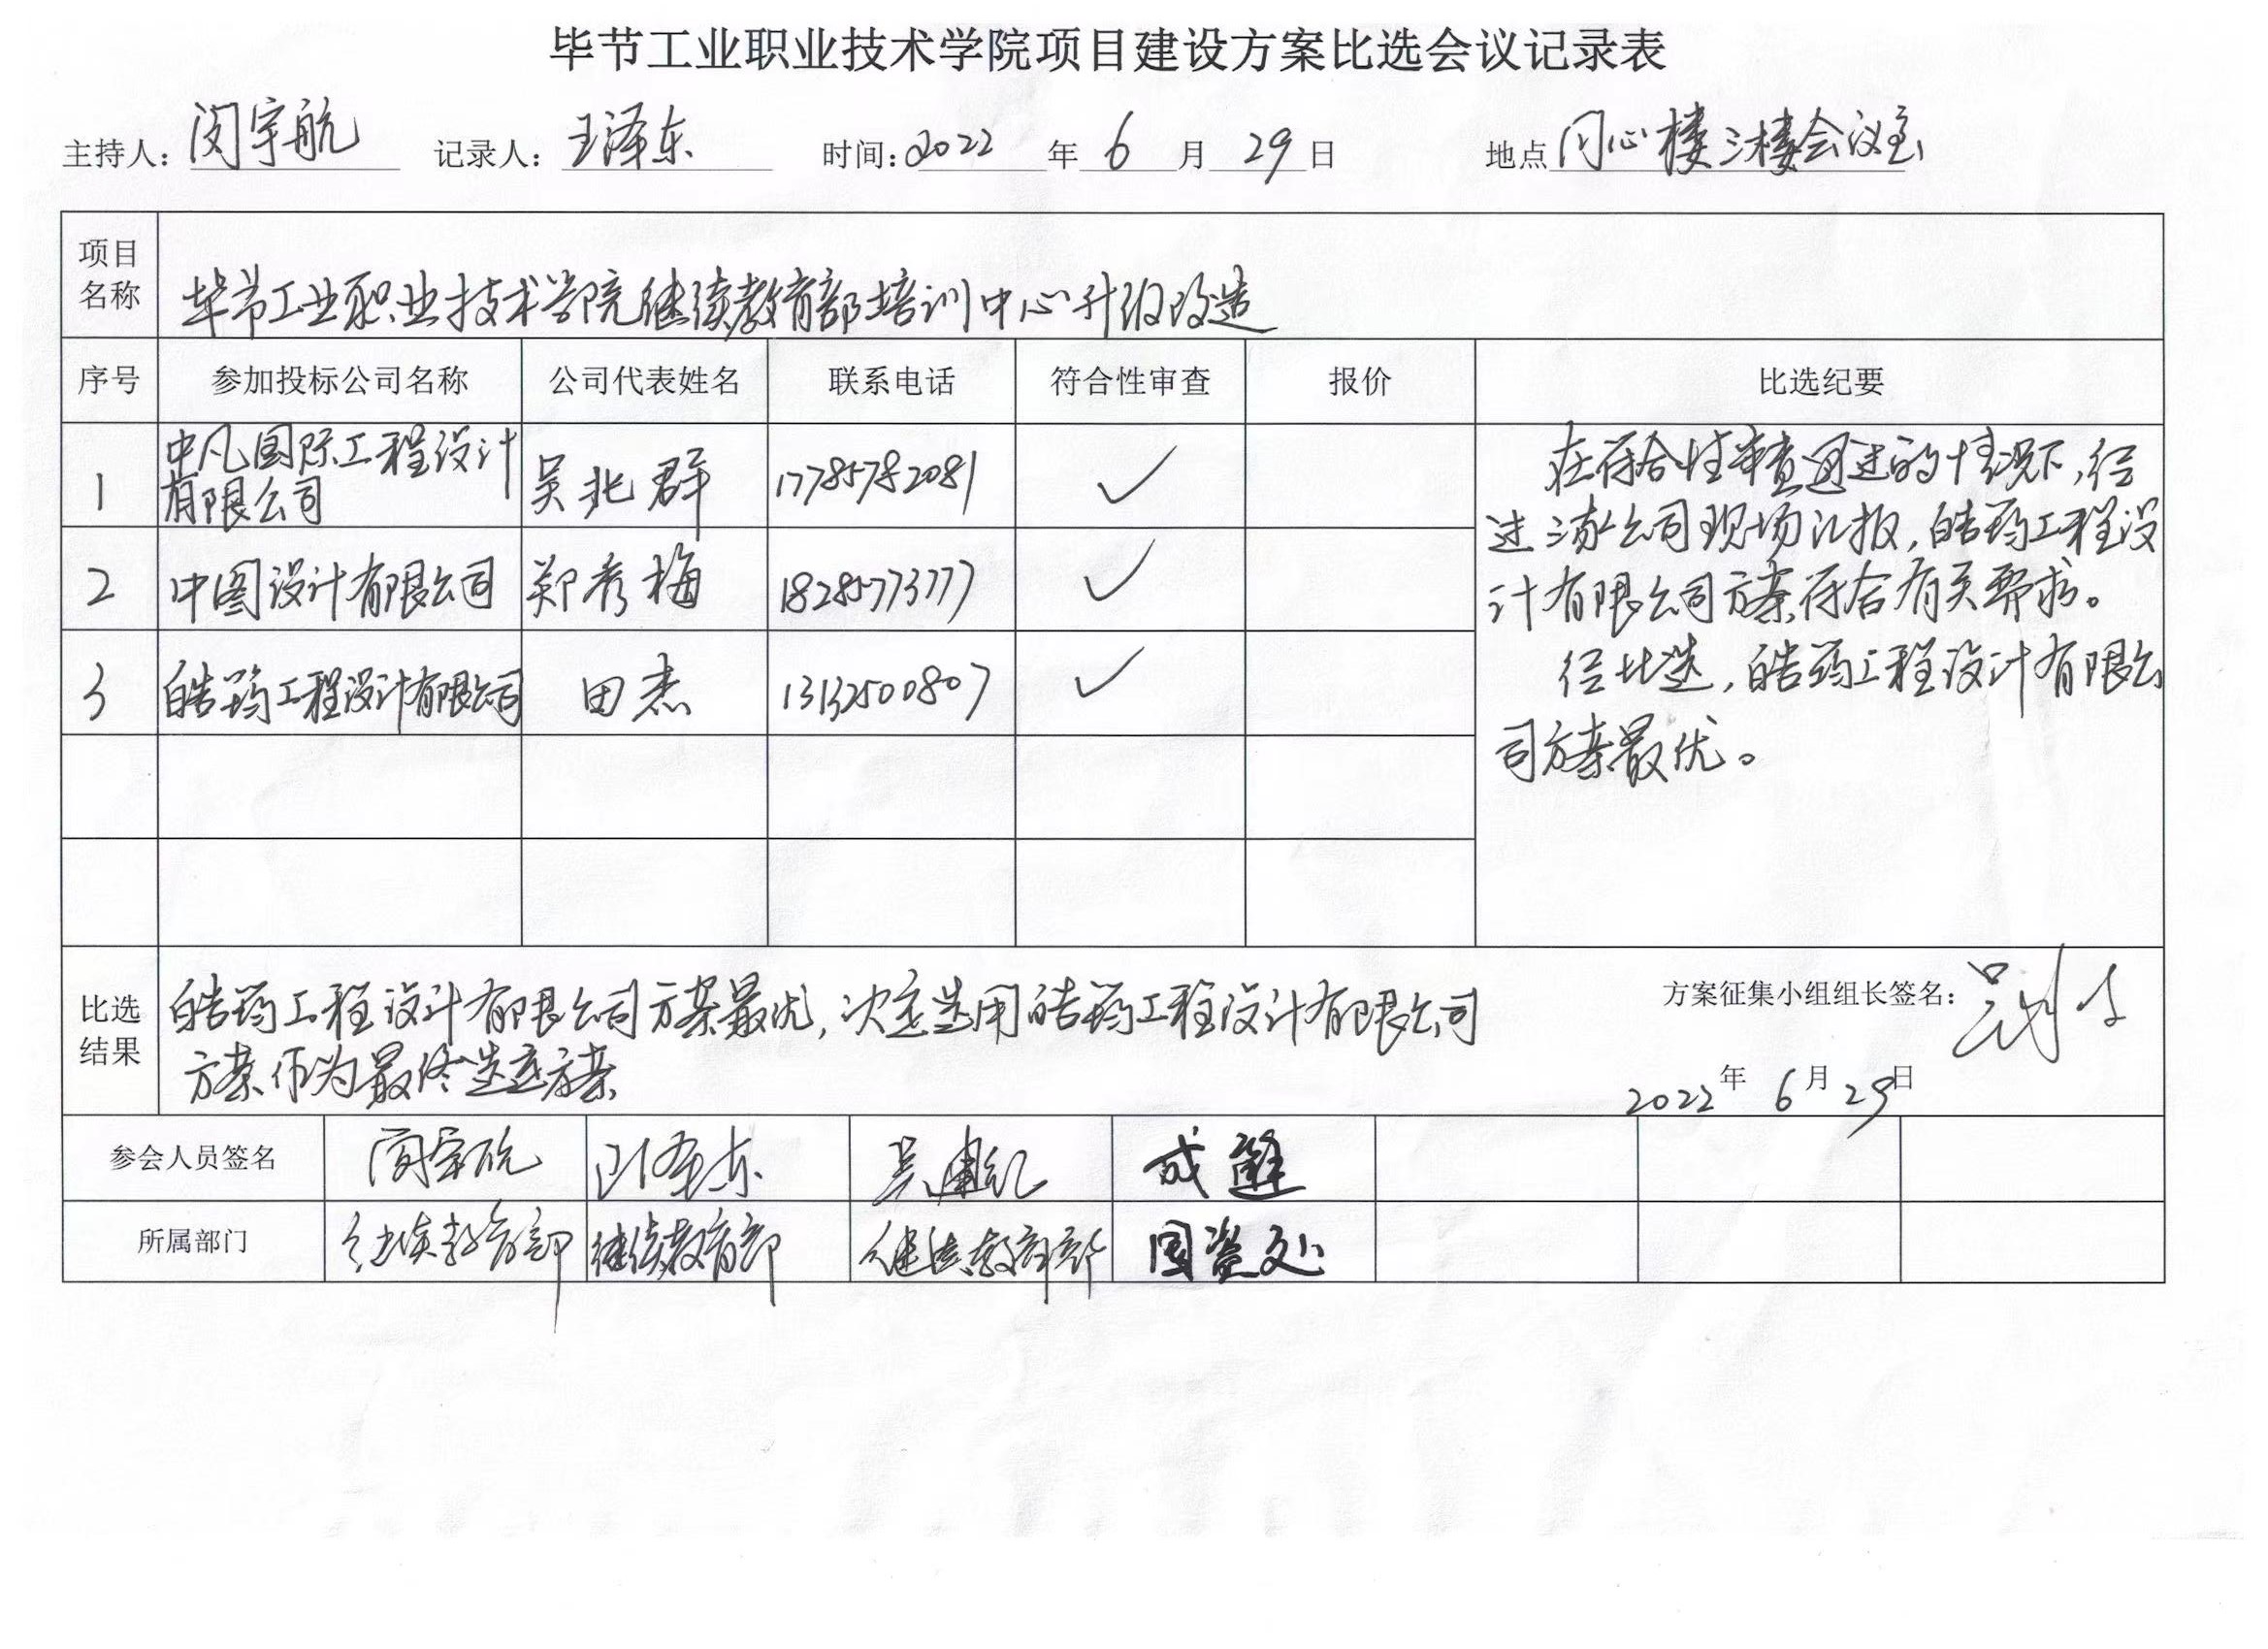 毕节工业职业技术学院项目建设方案比选会议记录表
主持人：闵宇航 记录人：王泽东 时间：2022年6月29日 地点 同心楼三楼会议室
项目名称 毕节工业职业技术学院继续教育部培训中心升级改造
序号 参加投标公司名称 公司代表姓名 联系电话 符合性审查 报价 比选纪要
1 中凡国际工程设计有限公司 吴北群 17785782081 ✓
2 中图设计有限公司 郑秀梅 18285773777 ✓
3 皓筠工程设计有限公司 田杰 13132500807 ✓
在符合性审查通过的情况下，经
过三家公司现场汇报，皓筠工程设
计有限公司方案符合有关要求。
经比选，皓筠工程设计有限公
司方案最优。
比选结果 皓筠工程设计有限公司方案最优，决定选用皓筠工程设计有限公司
方案作为最终选定方案
方案征集小组组长签名：
2022年6月29日
参会人员签名 闵宇航 王泽东 吴建纪 成
所属部门 继续教育部 继续教育部 继续教育部 国资处